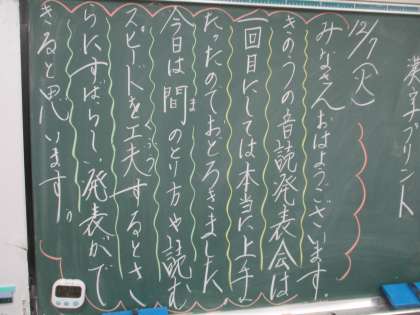 漢字プリント
12/7(火)
みなさんおはようございます。
きのうの音読発表会は
一回目にしては本当に上手
だったのでおどろきました
今日は間のとり方や読む
ま
スピードを工夫するとさ
くふう
らにすばらしい発表がで
きると思います。